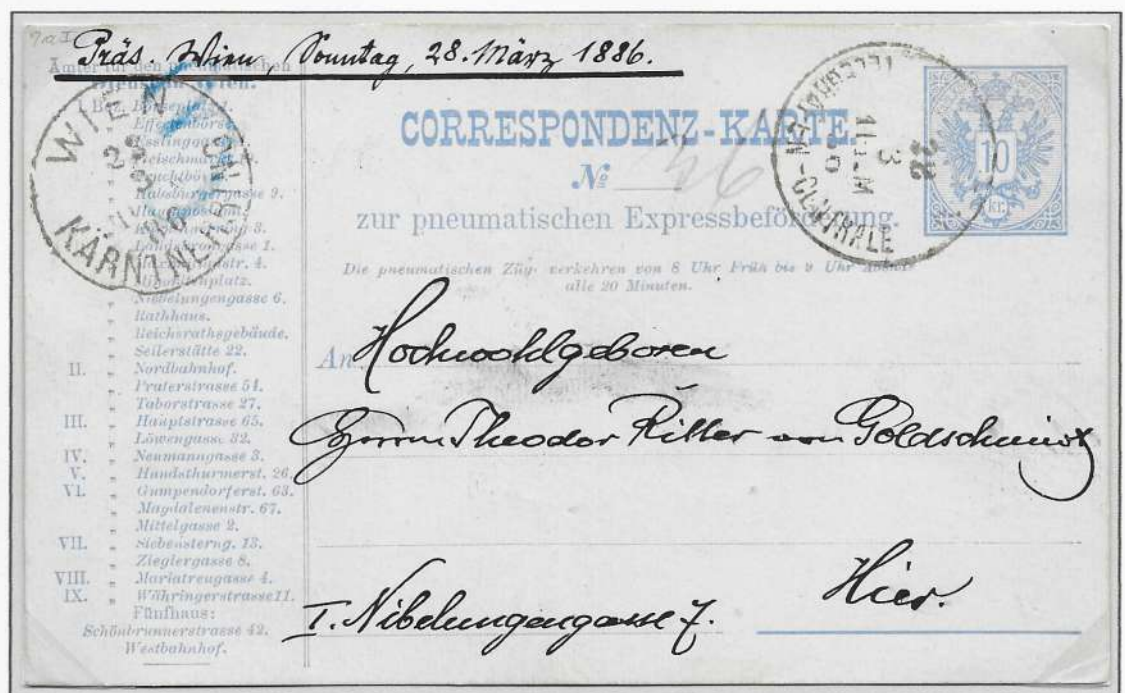 Präs. Wien, Sonntag, 28. März 1886.
Ämter für den pneumatischen
Dienst in Wien:
I. Bez. Börseplatz 1.
Effectenbörse.
Fleischmarkt
Fruchtbörse
Habsburgergasse 9.
Minoritenplatz.
Nibelungengasse 6.
Rathhaus.
Reichsrathsgebäude.
Seilerstätte 22.
II. " Nordbahnhof.
" Praterstrasse 54.
" Taborstrasse 27.
III. " Hauptstrasse 65.
" Löwengasse 32.
IV. " Neumanngasse 3.
V. " Hundsthurmerst. 26.
VI. " Gumpendorferst. 63.
" Magdalenenstr. 67.
" Mittelgasse 2.
VII. " Siebensterng. 13.
" Zieglergasse 8.
VIII. " Mariatreugasse 4.
IX. " Währingerstrasse 11.
Fünfhaus:
Schönbrunnerstrasse 42.
Westbahnhof.
WIEN
KÄRNTNERRING
CORRESPONDENZ-KARTE.
No 36
zur pneumatischen Expressbeförderung.
Die pneumatischen Züge verkehren von 8 Uhr Früh bis 9 Uhr Abends
alle 20 Minuten.
WIEN-CENTRALE
28
3
10
kr.
An Hochwohlgeboren
Herrn Theodor Ritter von Goldschmidt
Hier.
I. Nibelungengasse 7.